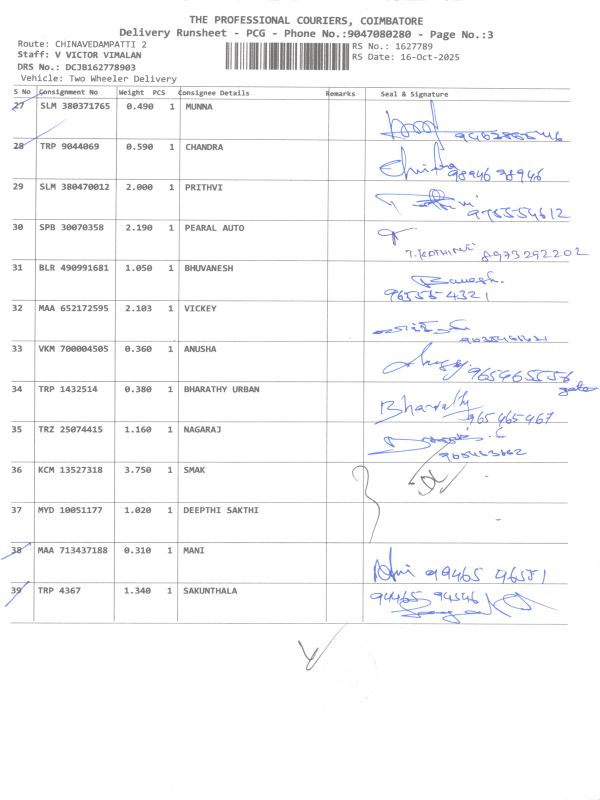 THE PROFESSIONAL COURIERS, COIMBATORE
Delivery Runsheet - PCG - Phone No.:9047080280 - Page No.:3
Route: CHINAVEDAMPATTI 2
RS No.: 1627789
Staff: V VICTOR VIMALAN
RS Date: 16-Oct-2025
DRS No.: DCJB162778903
Vehicle: Two Wheeler Delivery
S No Consignment No Weight PCS Consignee Details Remarks Seal & Signature
27 SLM 380371765 0.490 1 MUNNA
28 TRP 9044069 0.590 1 CHANDRA
98946 98946
29 SLM 380470012 2.000 1 PRITHVI
30 SPB 30070358 2.190 1 PEARAL AUTO
8973292202
31 BLR 490991681 1.050 1 BHUVANESH
32 MAA 652172595 2.103 1 VICKEY
33 VKM 700004505 0.360 1 ANUSHA
34 TRP 1432514 0.380 1 BHARATHY URBAN
Bharathy
965465467
35 TRZ 25074415 1.160 1 NAGARAJ
36 KCM 13527318 3.750 1 SMAK
37 MYD 10051177 1.020 1 DEEPTHI SAKTHI
38 MAA 713437188 0.310 1 MANI
39 TRP 4367 1.340 1 SAKUNTHALA
94465 94546